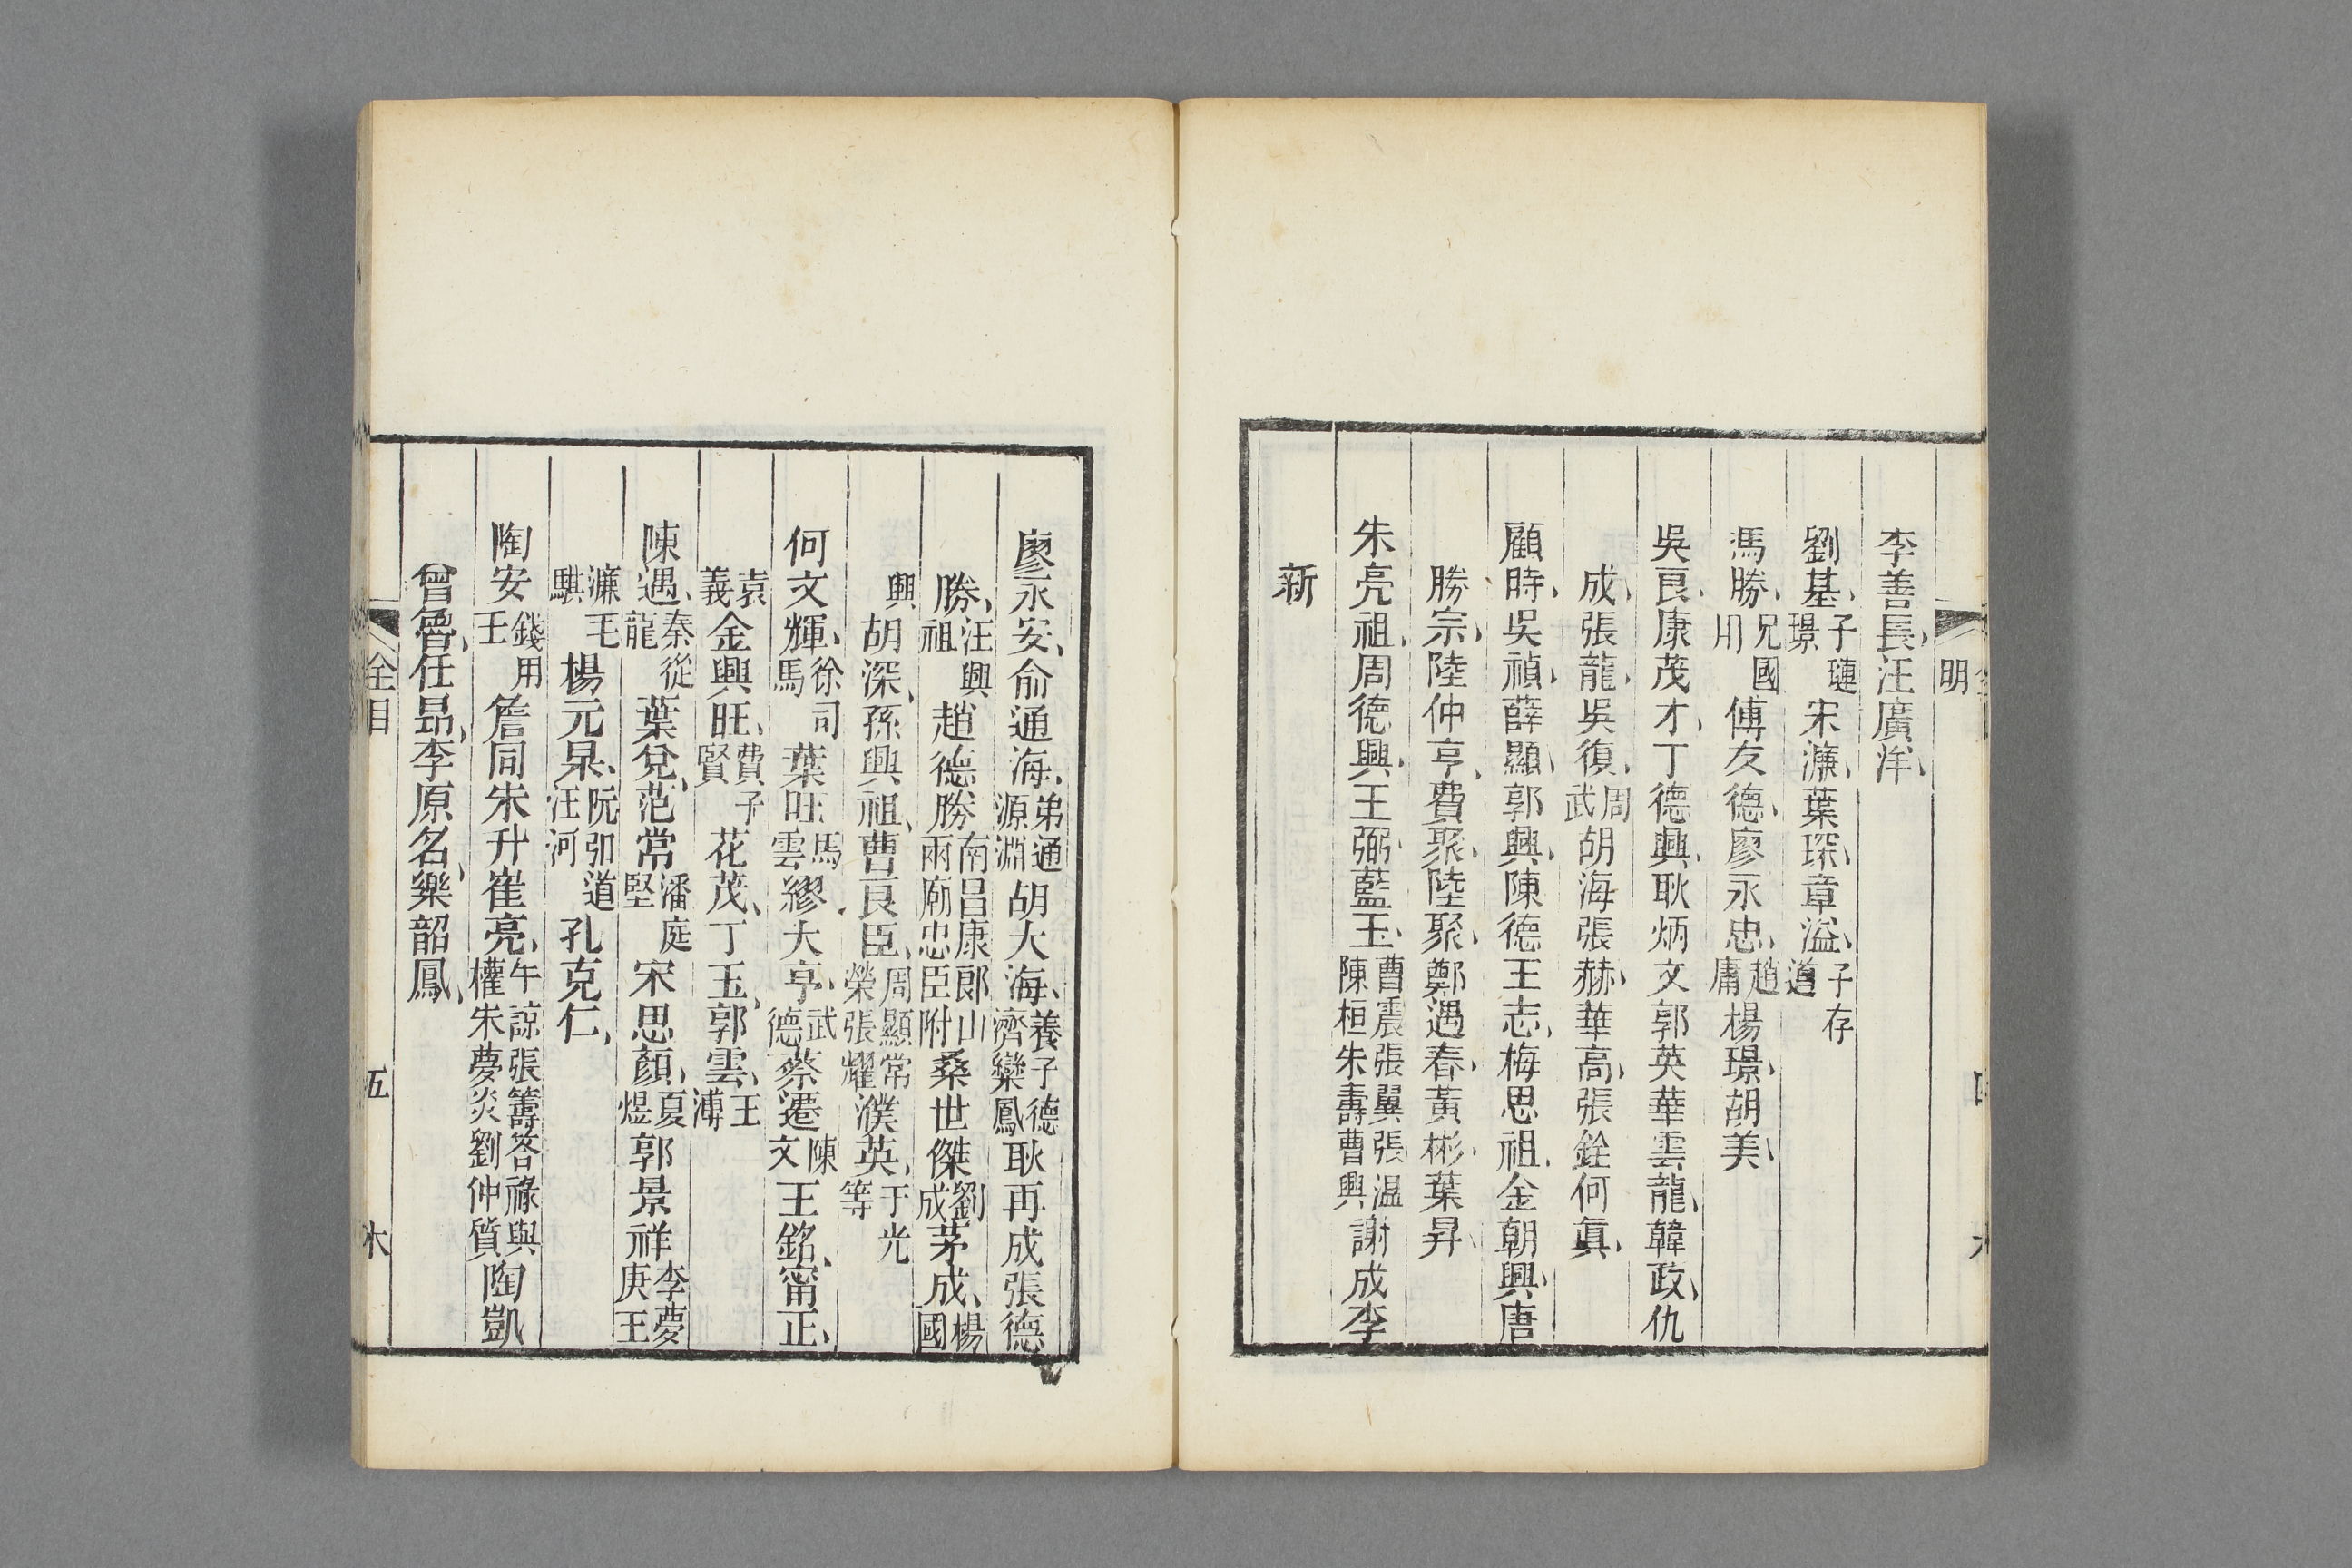 明
李善長、汪廣洋、
劉基、子璉璟宋濂、葉琛、章溢、子存道
馮勝、兄國用傅友德、廖永忠、趙庸楊璟、胡美、
吳良、康茂才、丁德興、耿炳文郭英華雲龍、韓政、仇
成、張龍、吳復、周武胡海張赫、華高、張銓何真、
顧時、吳禎、薛顯、郭興、陳德王志、梅思祖、金朝興、唐
勝宗、陸仲亨、費聚、陸聚、鄭遇春、黃彬、葉昇、
朱亮祖、周德興、王弼、藍玉、曹震張翼張温陳桓朱壽曹興謝成李
新
廖永安、俞通海、弟通源淵胡大海、養子德濟欒鳳耿再成張德
勝、汪興祖趙德勝南昌康郎山兩廟忠臣附桑世傑劉成茅成、楊國
興胡深、孫興祖、曹良臣、周顯常榮張耀濮英、于光等
何文輝、徐司馬葉旺馬雲繆大亨、武德蔡遷陳文王銘、甯正、
袁義金興旺、費子賢花茂、丁玉、郭雲、王溥
陳遇、秦從龍葉兌、范常潘庭堅宋思顏、夏煜郭景祥李夢庚王
濂毛騏楊元杲、阮弘道汪河孔克仁、
陶安錢用壬詹同朱升崔亮、牛諒張籌答祿與權朱夢炎劉仲質陶凱
曾魯、任昂、李原名、樂韶鳳、
全目
五